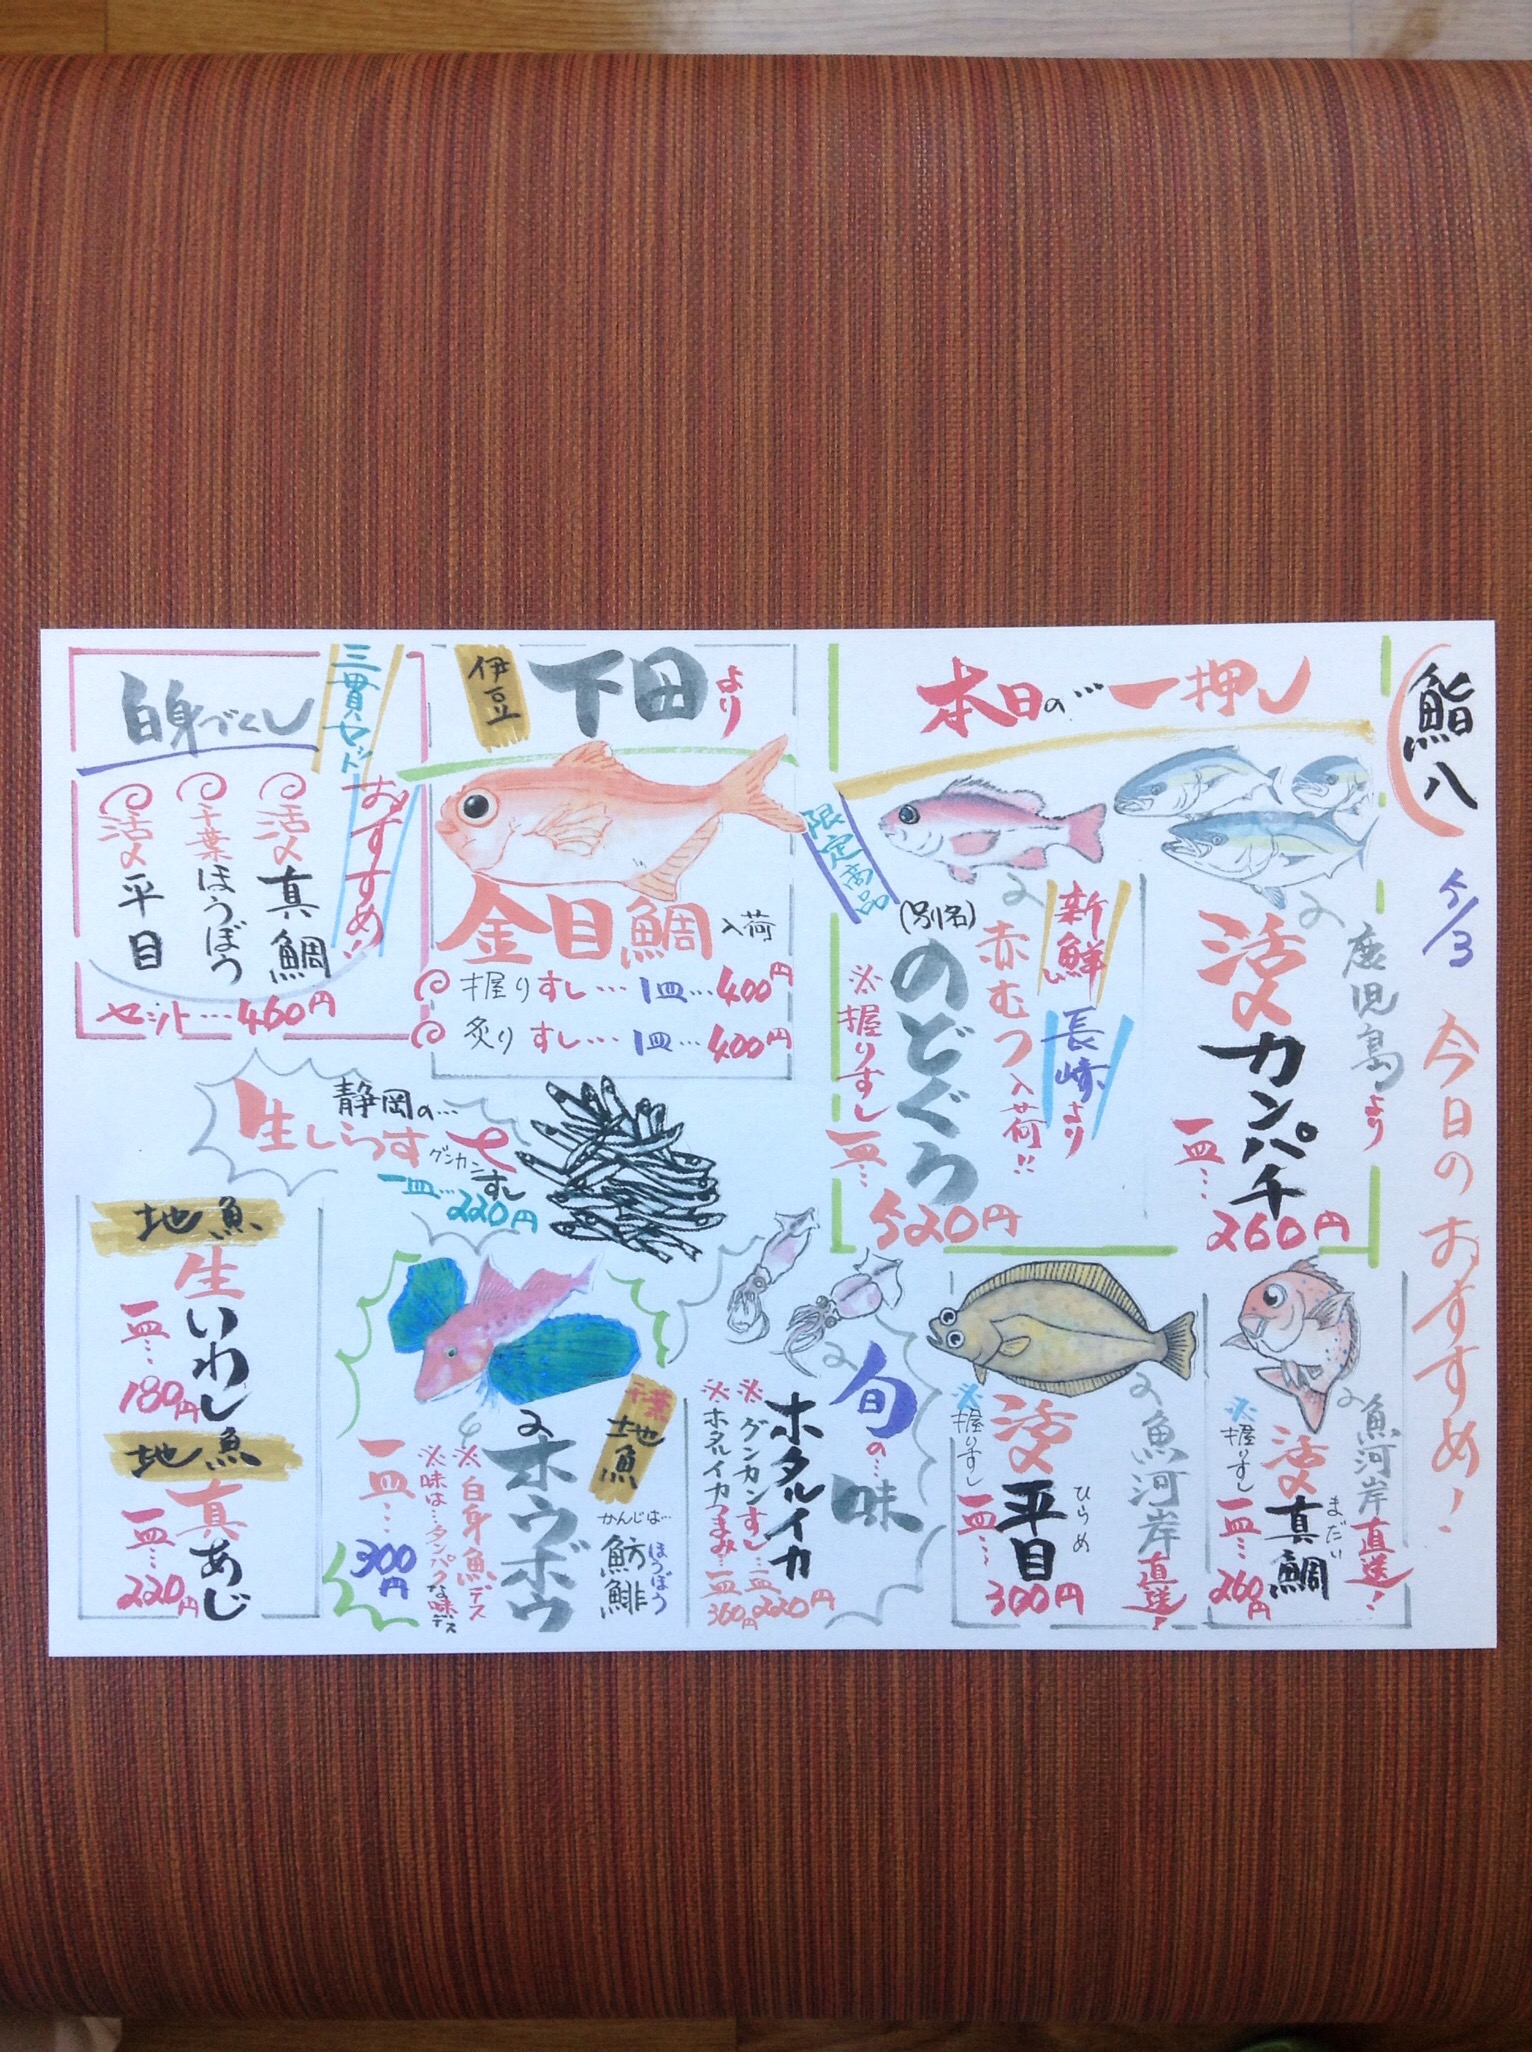 鮨八
5/3
今日のおすすめ!
本日の…一押し
鹿児島より
活〆カンパチ
一皿…
260円
新鮮
長崎より
赤むつ入荷!!
(別名)
のどぐろ
※握りすし
一皿…
520円
限定商品
伊豆
下田より
金目鯛入荷
握りすし…1皿…400円
炙りすし…1皿…400円
三貫セット
おすすめ!
白身づくし
活〆真鯛
千葉ほうぼう
活〆平目
セット…460円
静岡の…
生しらす
グンカンすし
一皿…220円
魚河岸直送!
まだい
活〆真鯛
※握りすし
一皿…260円
魚河岸直送!
ひらめ
活〆平目
※握りすし
一皿…
300円
旬の…味
ホタルイカ
※グンカンすし…一皿220円
※ホタルイカつまみ…一皿360円
千葉
地魚
かんじは…
ほうぼう
魴鮄
ホウボウ
※白身魚デス
※味は…タンパクな味デス
一皿…300円
地魚
生いわし
一皿…180円
地魚
真あじ
一皿…220円